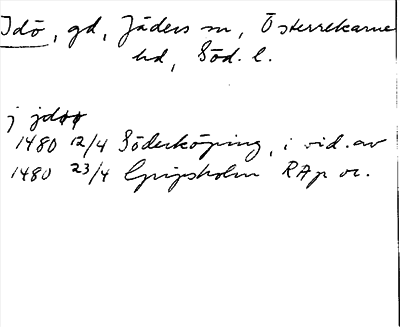 Idö, gd, Jäders sn, Österrekarne
hd, Söd. l.
j jdöö
1480 12/4 Söderköping, i vid. av
1480 23/4 Gripsholm RAp or.